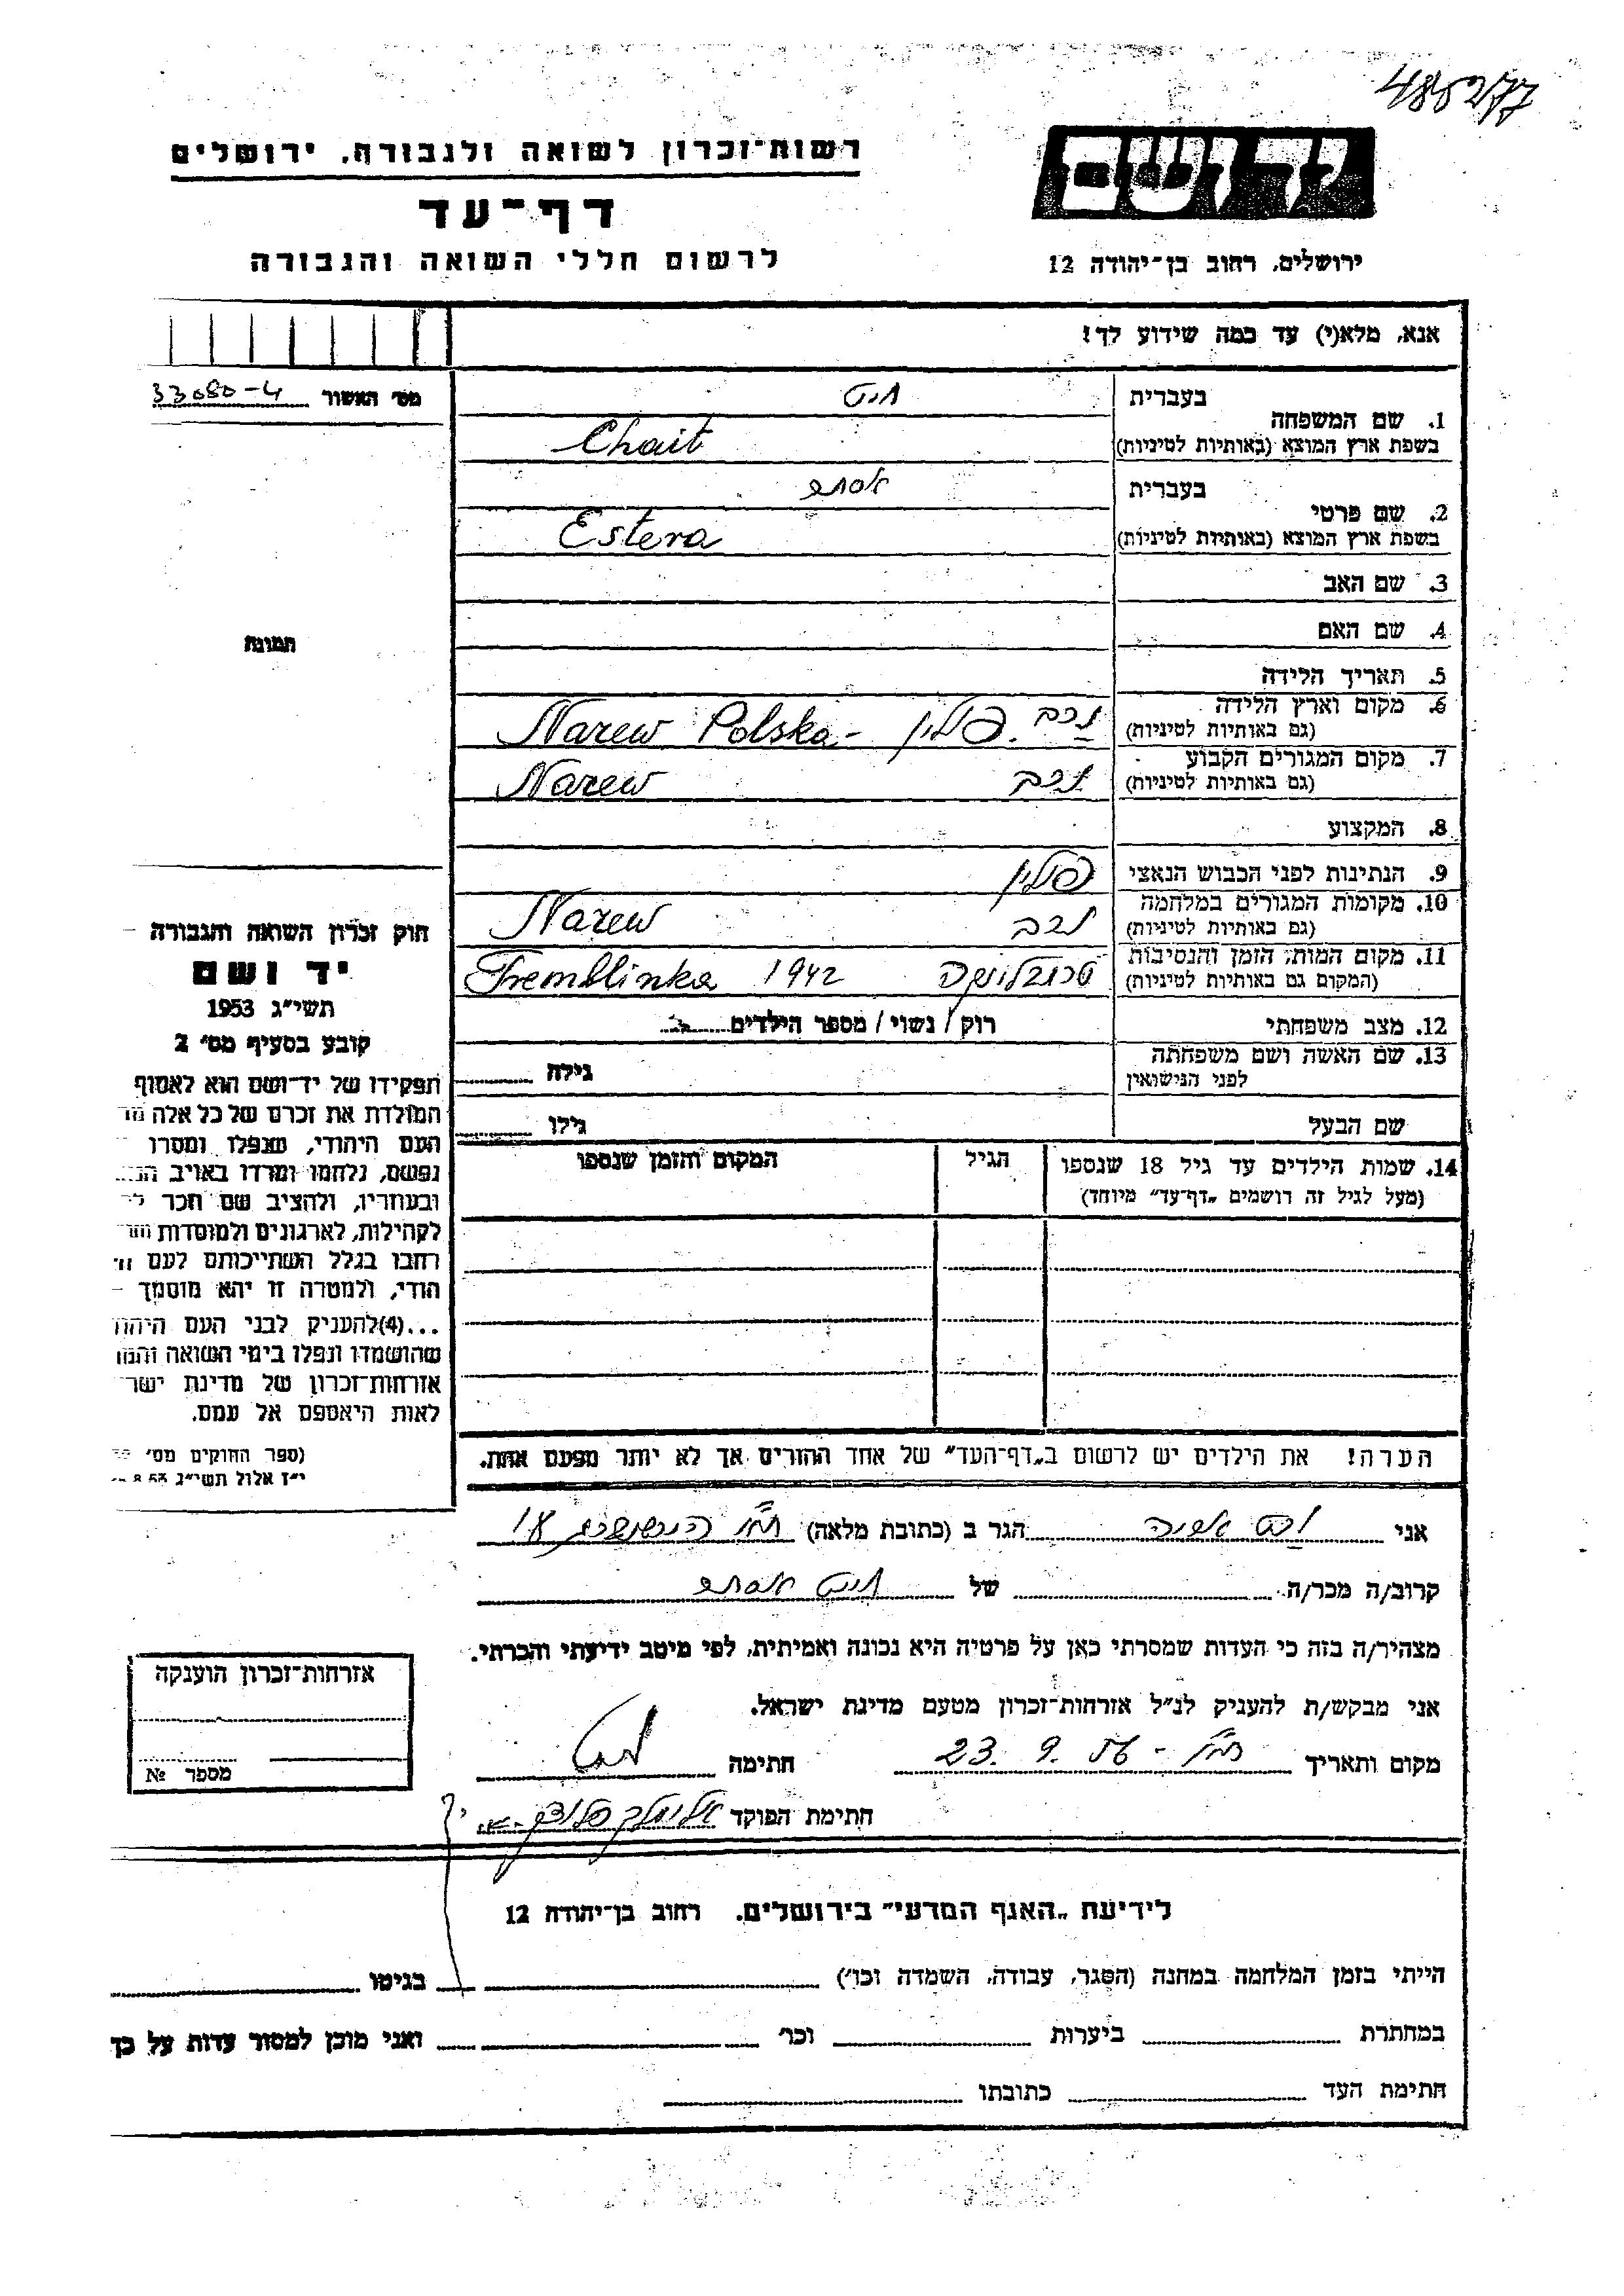 רשות־זכרון לשואה ולגבורה, ירושלים
דף־עד
לרשום חללי השואה והגבורה
יד ושם
ירושלים, רחוב בן־יהודה 12
אנא, מלא(י) עד כמה שידוע לך!
מס׳ האשור 33080-4
תמונה
1. שם המשפחה
בעברית חיט
בשפת ארץ המוצא (באותיות לטיניות) Chait
2. שם פרטי
בעברית אסתר
בשפת ארץ המוצא (באותיות לטיניות) Estera
3. שם האב
4. שם האם
5. תאריך הלידה
6. מקום וארץ הלידה
(גם באותיות לטיניות) נרב. פולין - Narew Polska
7. מקום המגורים הקבוע
(גם באותיות לטיניות) נרב Narew
8. המקצוע
9. הנתינות לפני הכבוש הנאצי פולין
10. מקומות המגורים במלחמה
(גם באותיות לטיניות) נרב Narew
11. מקום המות, הזמן והנסיבות
(המקום גם באותיות לטיניות) טרמבלינקה 1942 Tremblinka
12. מצב משפחתי רוק / נשוי / מספר הילדים
13. שם האשה ושם משפחתה
לפני הנישואין גילה
שם הבעל גילו
14. שמות הילדים עד גיל 18 שנספו הגיל המקום והזמן שנספו
(מעל לגיל זה רושמים „דף־עד״ מיוחד)
הערה! את הילדים יש לרשום ב„דף־העד״ של אחד ההורים אך לא יותר מפעם אחת.
חוק זכרון השואה והגבורה –
יד ושם
תשי״ג 1953
קובע בסעיף מס׳ 2
תפקידו של יד־ושם הוא לאסוף
המולדת את זכרם של כל אלה
העם היהודי, שנפלו ומסרו
נפשם, נלחמו ומרדו באויב
ובעוזריו, ולהציב שם וזכר
לקהילות, לארגונים ולמוסדות
רחבו בגלל השתייכותם לעם
הודי, ולמטרה זו יהא מוסמך –
...(4)להעניק לבני העם
שהושמדו ונפלו בימי השואה
אזרחות־זכרון של מדינת
לאות היאספם אל עמם.
(ספר החוקים מס׳
י״ז אלול תשי״ג
אני הגר ב (כתובת מלאה)
קרוב/ה מכר/ה של חיט אסתר
מצהיר/ה בזה כי העדות שמסרתי כאן על פרטיה היא נכונה ואמיתית, לפי מיטב ידיעתי והכרתי.
אני מבקש/ת להעניק לנ״ל אזרחות־זכרון מטעם מדינת ישראל.
מקום ותאריך ת״א - 23. 9. 56 חתימה
חתימת הפוקד
אזרחות־זכרון הוענקה
מספר №
לידיעת „האגף המדעי״ בירושלים. רחוב בן־יהודה 12
הייתי בזמן המלחמה במחנה (הסגר, עבודה, השמדה וכו׳) בגיטו
במחתרת ביערות וכו׳ ואני מוכן למסור עדות על כך
חתימת העד כתובתו